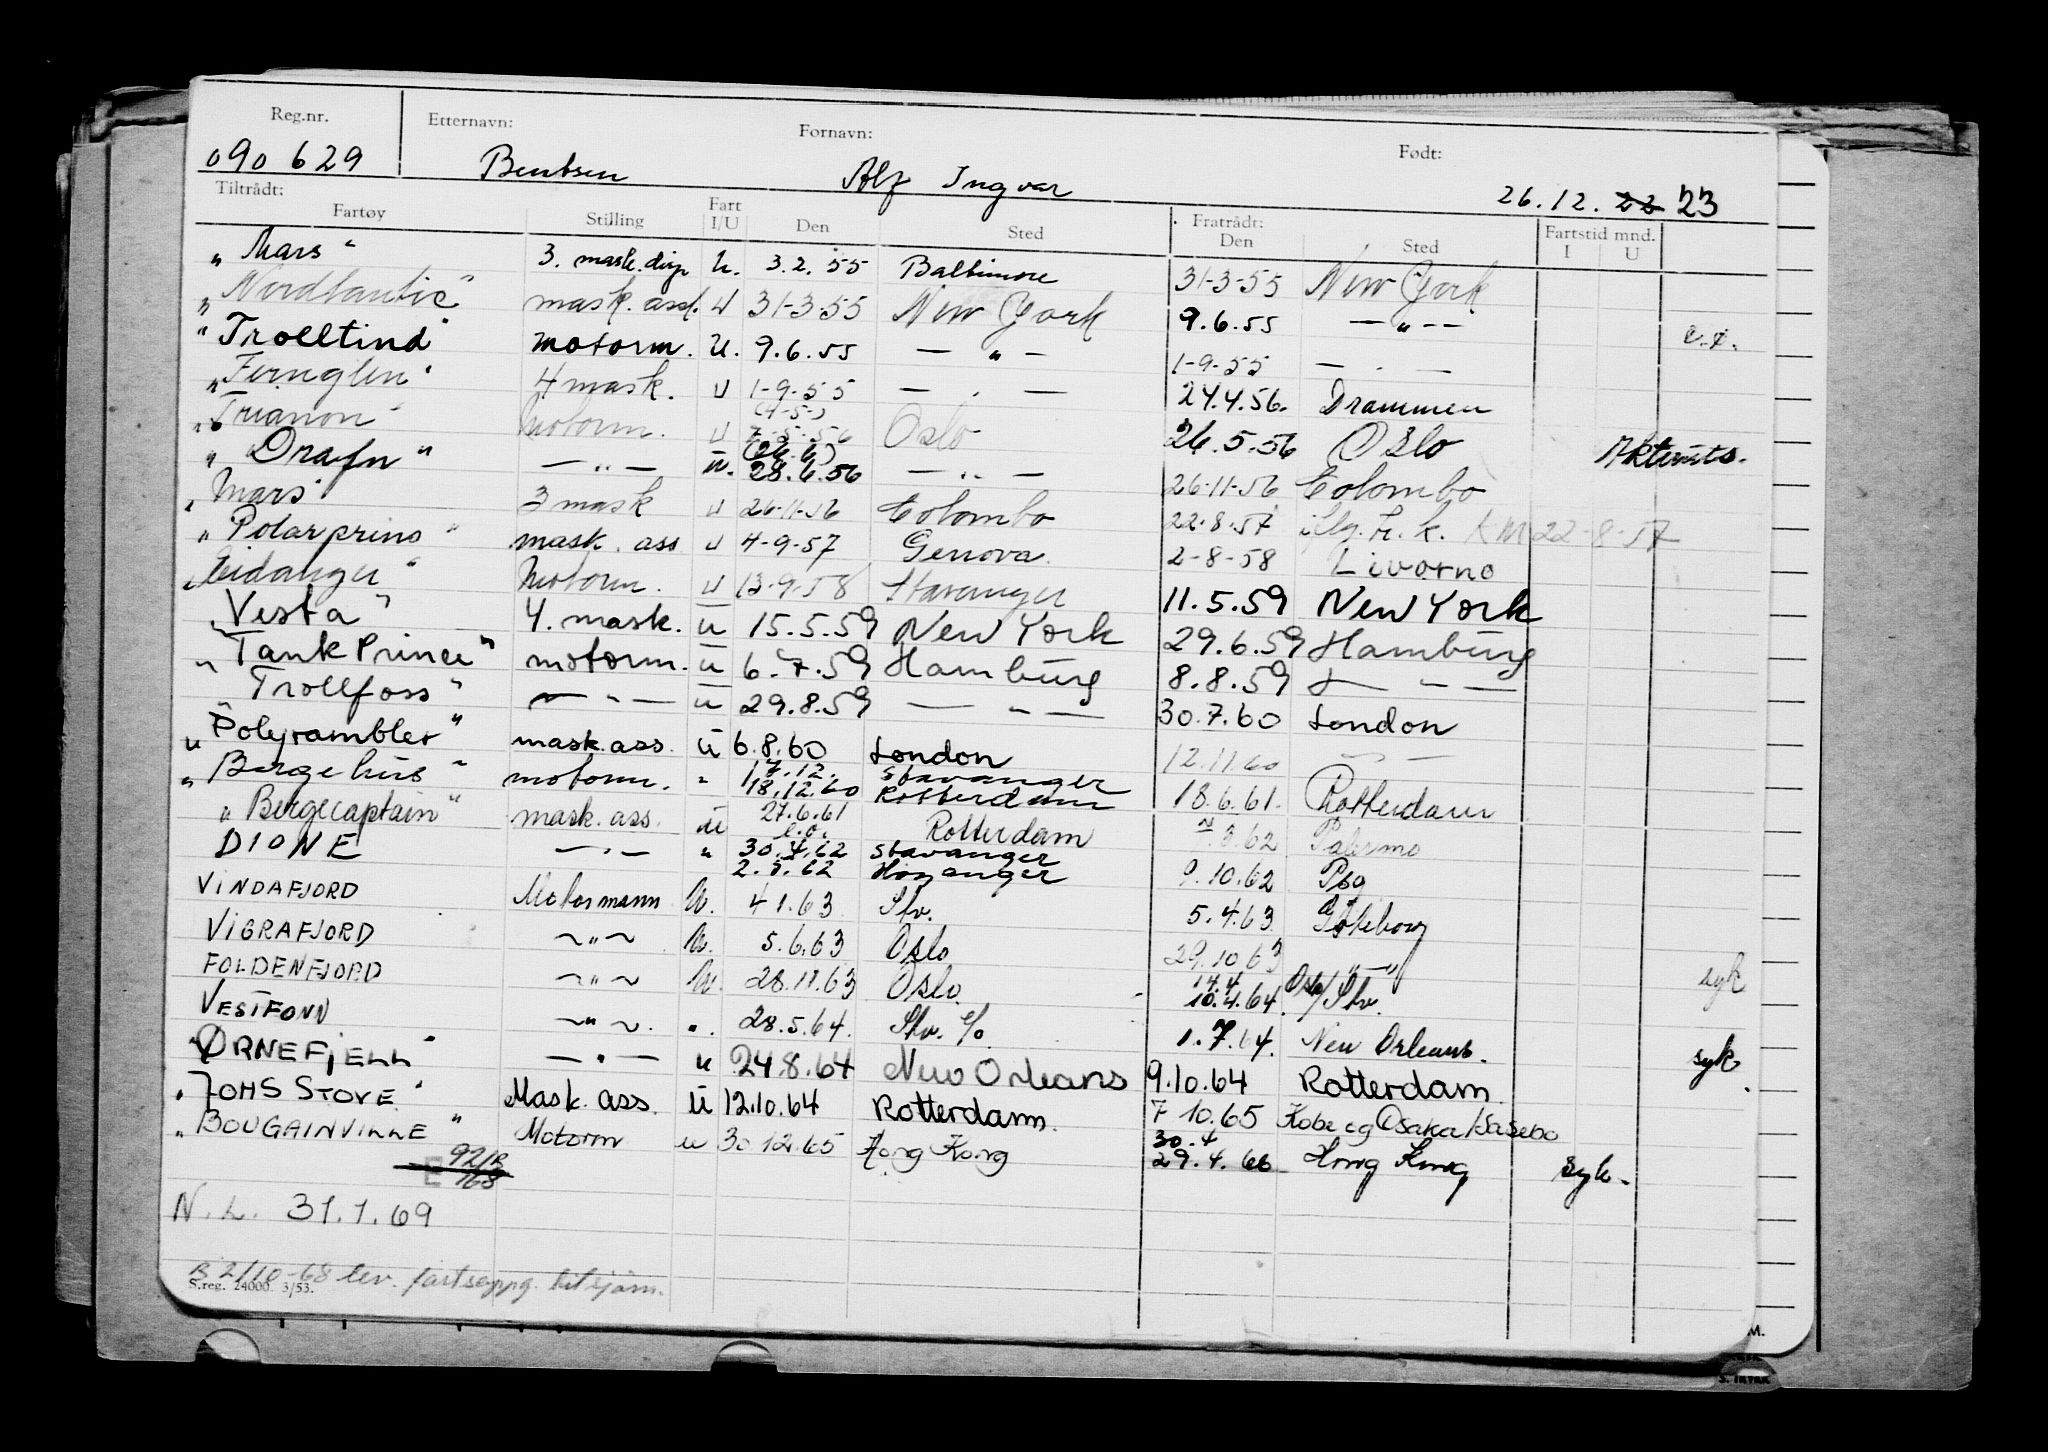 Reg.nr. Etternavn: Fornavn: Født:
090629 Bentsen Alf Ingvar 26.12. 22 23
Tiltrådt: Fratrådt:
Fartøy Stilling Fart I/U Den Sted Den Sted Fartstid mnd. I U
"Mars" 3. mask. U. 3.2.55 Baltimore 31-3-55 New York
"Nordlantic" mask. ass. U 31-3-55 New York 9.6.55 — " — —
"Trolltind" motorm. U. 9.6.55 — " — 1-9-55 — . —
"Fernglen" 4 mask. U 1-9-55 — . — 24.4.56. Drammen
"Trianon" Motorm. U (4-5-) 7-5-56 Oslo 26.5.56 Oslo
"Drafn" — " — u. (26.6) 28.6.56 — " — 26-11-56 Colombo
"Mars" 3 mask U 26-11-56 Colombo 22-8-57 KM 22-8-57
"Polarprins" mask. ass U 4-9-57 Genova. 2-8-58 Livorno
"Eidanger" Motorm. U 13-9-58 Stavanger 11.5.59 New York
"Vesta" 4. mask. u 15.5.59 New York 29.6.59 Hamburg
"Tank Prince" motorm. u 6.7.59 Hamburg 8.8.59 — " —
"Trollfoss" — " — u 29.8.59 — " — 30.7.60 London
"Polyrambler" mask.ass. u 6.8.60 London 12.11.60 — " —
"Bergehus" motorm. " 17.12. Stavanger 18.12.60 Rotterdam 18.6.61. Rotterdam
"Bergecaptain" mask. ass. u 27.6.61 Rotterdam Palermo
DIONE — " — " 30.4.62 Stavanger Høyanger 9.10.62 Pbg
VINDAFJORD Motormann U. 4 1.63. Stv. 5.4.63. Göteborg
VIGRAFJORD ~ " ~ U. 5.6.63 Oslo 29.10 63 — " —
FOLDENFJORD ~ " ~ U. 28.11.63 Oslo. 14.4 10.4.64 Oslo/Stv. syk
VESTFONN ~ " ~ ". 28.5.64. Stv. 1.7.64. New Orleans.
"ØRNEFJELL" — " — u 24.8.64 New Orleans 9.10.64 Rotterdam. syk
"JOHS STOVE" Mask. ass. u 12.10.64 Rotterdam. 7 10.65 Kobe og Osaka/Sasebo
"BOUGAINVILLE" Motorm u 30 12.65 Hong Kong 30.4 29.4.66 Hong Kong syk.
E
N.L. 31.1.69
B 21/10-68 lev. fartsoppg. til sjøm.
S.reg. 24000. 3/53.
M.